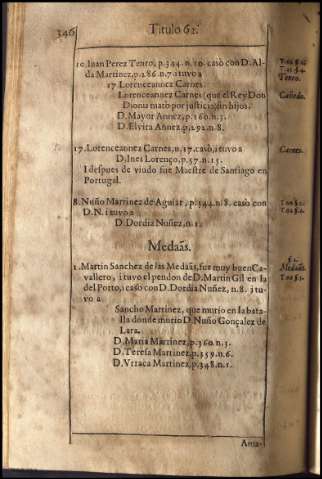 346 Titulo 62.
10. Iuan Perez Tento, p.344. n.10. casò con D. Al-
da Martinez, p.286. n.7. i tuvo a
17 Lorenceannez Carnes.
Lorenceannez Carnes (que el Rey Don
Dionis mato por justicia; sin hijos.
D. Mayor Annez, p.160. n.3.
D. Elvira Annez, p.292. n.8.
Tento.
Cañedo.
17. Lorenceannez Carnes, n.17. casò, i tuvo a
D. Ines Lorenço, p.57. n.15.
I despues de viudo fue Maestre de Santiago en
Portugal.
Carnes.
8. Nuño Martinez de Aguiar, p.344. n.8. casò con
D. N. i tuvo a
D. Dordia Nuñez, n.1.
Medaãs.
1. Martin Sanchez de las Medaãs, fue muy buen Ca-
vallero, i tuvo el pendon de D. Martin Gil en la
del Porto, i casò con D. Dordia Nuñez, n.8. i tu-
vo a
Sancho Martinez, que murio en la bata-
lla donde murio D. Nuño Gonçalez de
Lara.
D. Maria Martinez, p.360. n.3.
D. Teresa Martinez, p.359. n.6.
D. Vrraca Martinez, p.348. n.1.
§ 2.
Medaãs.
Ama-